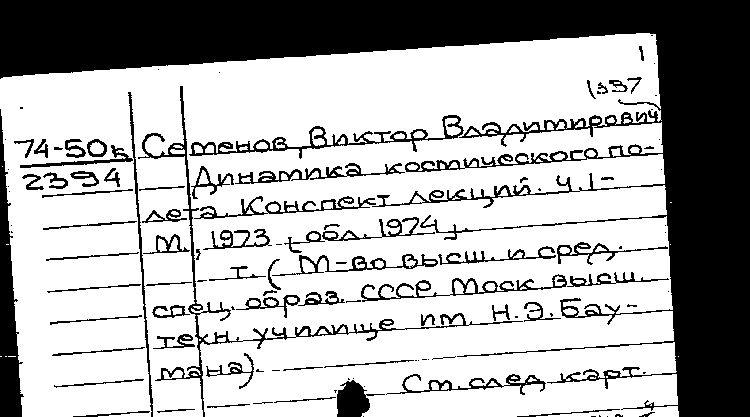 1
1337
74-50к Семенов, Виктор Владимирович
2394 Динамика космического по-
лета. Конспект лекций. Ч.1-
М., 1973 [обл. 1974].
т. (М-во высш. и сред.
спец. образ. СССР. Моск высш.
техн. училище им. Н.Э.Бау-
мана).
См. след карт.